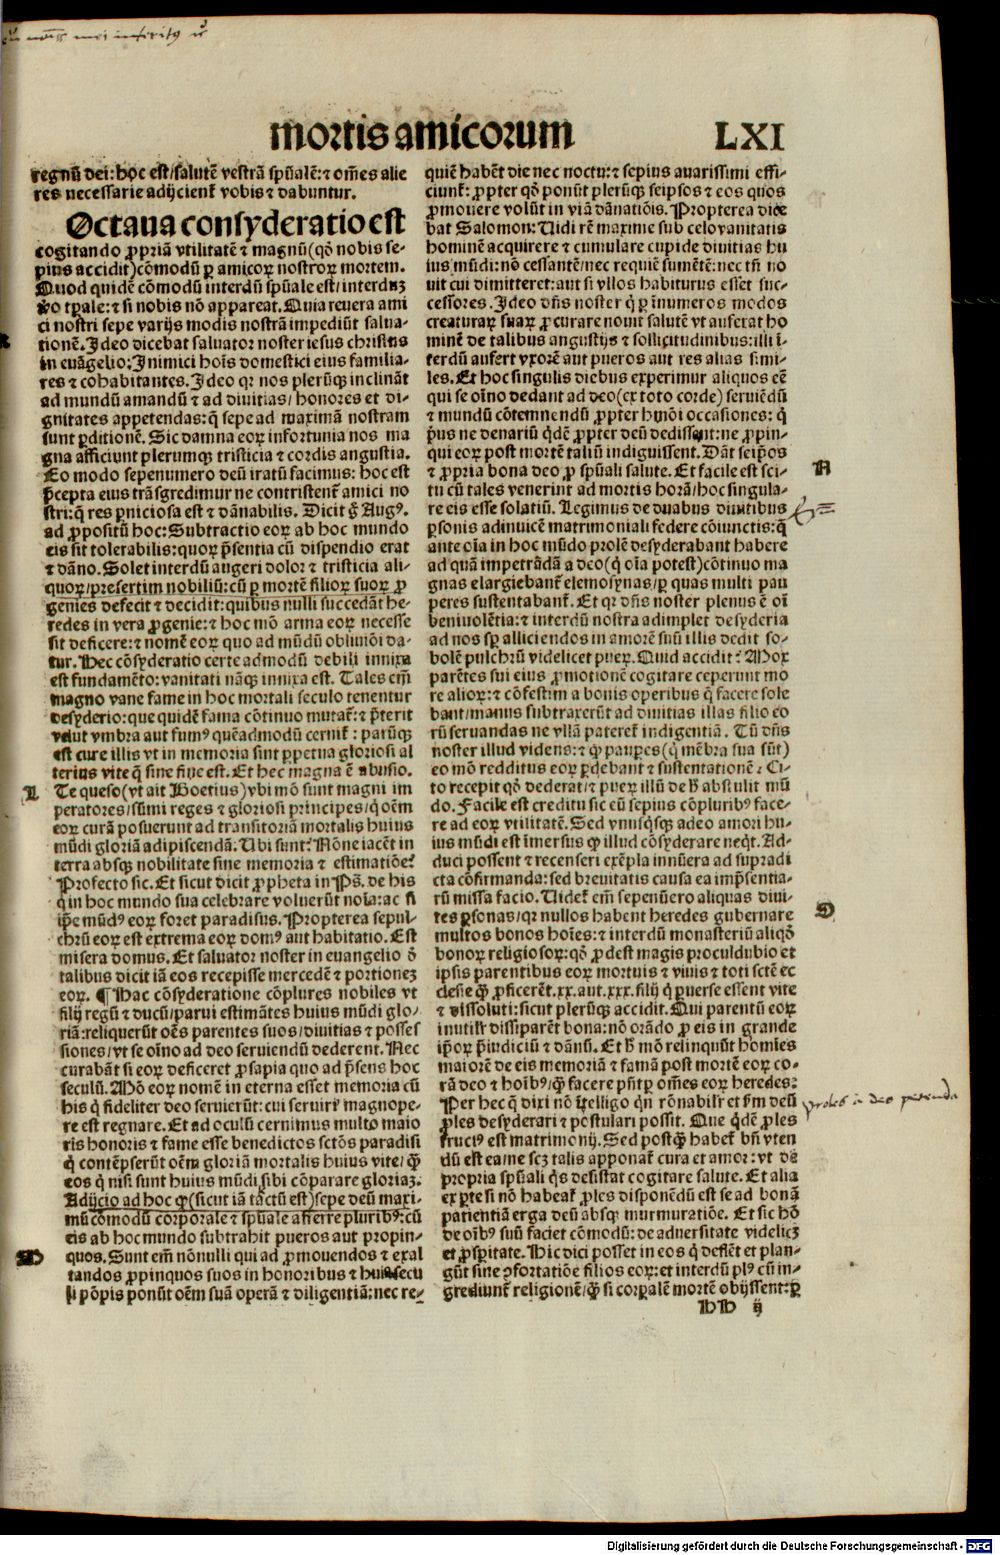 mortis amicorum LXI
regnū dei: hoc est/salutē vestrā spūalē: ⁊ om̄es alie
res necessarie adijcient̃ vobis ⁊ dabuntur.
Octaua consyderatio est
cogitando ꝓpriā vtilitatē ⁊ magnū (qd̄ nobis se-
pius accidit) cōmodū ꝑ amicoꝝ nostroꝝ mortem.
Quod quidē cōmodū interdū spūale est/interdūꝫ
ꝟo tꝑale: ⁊ si nobis nō appareat. Quia reuera ami
ci nostri sepe varijs modis nostrā impediūt salua-
tionē. Ideo dicebat saluator noster iesus christus
in euāgelio: Inimici hoīs domestici eius familia-
res ⁊ cohabitantes. Ideo qr nos plerūqꝫ inclināt
ad mundū amandū ⁊ ad diuitias/honores et di-
gnitates appetendas: q̄ sepe ad maximā nostram
sunt ꝑditionē. Sic damna eoꝝ infortunia nos ma
gna afficiunt plerumqꝫ tristicia ⁊ cordis angustia.
Eo modo sepenumero deū iratū facimus: hoc est
p̄cepta eius trāsgredimur ne contristent̃ amici no
stri: q̄ res ꝑniciosa est ⁊ dānabilis. Dicit g̊ Augꝰ.
ad ꝓpositū hoc: Subtractio eoꝝ ab hoc mundo
eis sit tolerabilis: quoꝝ p̄sentia cū dispendio erat
⁊ dāno. Solet interdū augeri dolor ⁊ tristicia ali-
quoꝝ/presertim nobiliū: cū ꝑ mortē filioꝝ suoꝝ ꝓ
genies defecit ⁊ decidit: quibus nulli succedāt he-
redes in vera ꝓgenie: ⁊ hoc mō arma eoꝝ necesse
sit deficere: ⁊ nomē eoꝝ quo ad mūdū obliuiōi da-
tur. Hec cōsyderatio certe admodū debili innixa
est fundamēto: vanitati nāqꝫ innixa est. Tales em̄
magno vane fame in hoc mortali seculo tenentur
desyderio: que quidē fama cōtinuo mutat̃: ⁊ p̄terit
velut vmbra aut fumꝰ quēadmodū cernit̃: patūqꝫ
est cure illis vt in memoria sint ꝑpetua gloriosi al
terius vite q̄ sine fine est. Et hec magna ē abusio.
Te queso (vt ait Boetius) vbi mō sunt magni im
peratores/sūmi reges ⁊ gloriosi principes/q̇ oēm
eoꝝ curā posuerunt ad transitoriā mortalis huius
mūdi gloriā adipiscendā. Ubi sunt? Nōne iacēt in
terra absqꝫ nobilitate sine memoria ⁊ estimatiōe?
Profecto sic. Et sicut dicit ꝓpheta in Ps̄. de his
q̇ in hoc mundo sua celebrare voluerūt noīa: ac si
ip̄e mūdꝰ eoꝝ foret paradisus. Propterea sepul-
chrū eoꝝ est extrema eoꝝ domꝰ aut habitatio. Est
misera domus. Et saluator noster in euangelio d̄
talibus dicit iā eos recepisse mercedē ⁊ portioneꝫ
eoꝝ. ¶ Hac cōsyderatione cōplures nobiles vt
filij regū ⁊ ducū/parui estimātes huius mūdi glo-
riā: reliquerūt oēs parentes suos/diuitias ⁊ posses
siones/vt se oīno ad deo seruiendū dederent. Nec
curabāt si eoꝝ deficeret ꝓsapia quo ad p̄sens hoc
seculū. Mō eoꝝ nomē in eterna esset memoria cū
his q̇ fideliter deo seruierūt: cui seruire magnope-
re est regnare. Et ad oculū cernimus multo maio
ris honoris ⁊ fame esse benedictos sctōs paradisi
q̇ contēpserūt oēm gloriā mortalis huius vite/q̄ꝫ
eos q̇ nisi sunt huius mūdi sibi cōparare gloriaꝫ.
Adijcio ad hoc ꝙ (sicut iā tactū est) sepe deū maxi-
mū cōmodū corporale ⁊ spūale afferre pluribꝰ: cū
eis ab hoc mundo subtrahit pueros aut propin-
quos. Sunt em̄ nōnulli qui ad ꝓmouendos ⁊ exal
tandos ꝓpinquos suos in honoribus ⁊ huiꝰ secu
li pōpis ponūt oēm suā operā ⁊ diligentiā: nec re-
quiē habēt die nec noctu: ⁊ sepius auarissimi effi-
ciunt̃: ꝓpter qd̄ ponūt plerūqꝫ seipsos ⁊ eos quos
ꝓmouere volūt in viā dānatiōis. Propterea dice
bat Salomon: Uidi rē maxime sub celo vanitatis
hominē acquirere ⁊ cumulare cupide diuitias hu
ius mūdi: nō cessantē/nec requiē sumētē: nec tn̄ no
uit cui dimitteret: aut si vllos habiturus esset suc-
cessores. Ideo dn̄s noster q̇ ꝑ īnumeros modos
creaturaꝝ suaꝝ ꝓcurare nouit salutē vt auferat ho
minē de talibus angustijs ⁊ sollicitudinibus: illi ī-
terdū aufert vxorē aut pueros aut res alias simi-
les. Et hoc singulis diebus experimur aliquos eē
qui se oīno dedant ad deo (ex toto corde) seruiēdū
⁊ mundū cōtemnendū ꝓpter hmōi occasiones: q̇
p̄us ne denariū qdē ꝓpter deū dedissent: ne ꝓpin-
qui eoꝝ post mortē taliū indiguissent. Dāt seip̄os
⁊ ꝓpria bona deo ꝓ spūali salute. Et facile est sci-
tu cū tales venerint ad mortis horā/hoc singula-
re eis esse solatiū. Legimus de duabus diuitibus
ꝑsonis adinuicē matrimoniali federe cōiunctis: q̄
ante oīa in hoc mūdo prolē desyderabant habere
ad quā impetrādā a deo (q̇ oīa potest) cōtinuo ma
gnas elargiebant̃ elemosynas/ꝑ quas multi pau
peres sustentabant̃. Et qr dn̄s noster plenus ē oī
beniuolētia: ⁊ interdū nostra adimplet desyderia
ad nos sꝑ alliciendos in amorē suū illis dedit so-
bolē pulchrū videlicet pueꝝ. Quid accidit? Mox
parētes sui eius ꝓmotionē cogitare ceperunt mo
re alioꝝ: ⁊ cōfestim a bonis operibus q̄ facere sole
bant/manus subtraxerūt ad diuitias illas filio eo
rū seruandas ne vllā pateret̃ indigentiā. Tū dn̄s
noster illud videns: ⁊ ꝙ pauꝑes (q̇ mēbra sua sūt)
eo mō redditus eoꝝ ꝑdebant ⁊ sustentationē: Ci-
to recepit qd̄ dederat/⁊ pueꝝ illū de h̄ abstulit mū
do. Facile est creditu sic eū sepius cōpluribꝰ face-
re ad eoꝝ vtilitatē. Sed vnusq̇sqꝫ adeo amori hu-
ius mūdi est īmersus ꝙ illud cōsyderare neq̇t. Ad-
duci possent ⁊ recenseri exēpla innūera ad supradi
cta cōfirmanda: sed breuitatis causa ea imp̄sentia-
rū missa facio. Uidet̃ em̄ sepenūero aliquas diui-
tes ꝑsonas/qr nullos habent heredes gubernare
multos bonos hoīes: ⁊ interdū monasteriū aliqd̄
bonoꝝ religiosoꝝ: qd̄ ꝓdest magis proculdubio et
ipsis parentibus eoꝝ mortuis ⁊ viuis ⁊ toti sctē ec
clesie q̄ꝫ ꝓficerēt .xx. aut .xxx. filij q̇ ꝑuerse essent vite
⁊ dissoluti: sicut plerūqꝫ accidit. Qui parentū eoꝝ
inutilr̄ dissiparēt bona: nō orādo ꝓ eis in grande
ip̄oꝝ p̄iudiciū ⁊ dānū. Et h̄ mō relinquūt homīes
maiorē de eis memoriā ⁊ famā post mortē eoꝝ co-
rā deo ⁊ hoībꝰ/q̄ꝫ facere pn̄t ꝑ om̄es eoꝝ heredes:
Per hec q̄ dixi nō ītelligo qn̄ rōnabilr̄ et sm̄ deū
ꝓles desyderari ⁊ postulari possit. Que qdē ꝓles
fructꝰ est matrimonij. Sed postq̄ꝫ habet̃ bn̄ viten
dū est ea/ne scꝫ talis apponat̃ cura et amor: vt de
propria spūali q̇s desistat cogitare salute. Et alia
ex ꝑte si nō habeat̃ ꝓles disponēdū est se ad bonā
patientiā erga deū absqꝫ murmuratiōe. Et sic hō
de oībꝰ suū faciet cōmodū: de aduersitate videlicꝫ
et ꝓsꝑitate. Hic dici posset in eos q̇ deflēt et plan-
gūt sine ꝯfortatiōe filios eoꝝ: et interdū plꝰ cū in-
grediunt̃ religionē/q̄ꝫ si corꝑalē mortē obijssent: ꝑ
L
M
N
O
proles a deo petenda
hh ij
Digitalisierung gefördert durch die Deutsche Forschungsgemeinschaft - DFG